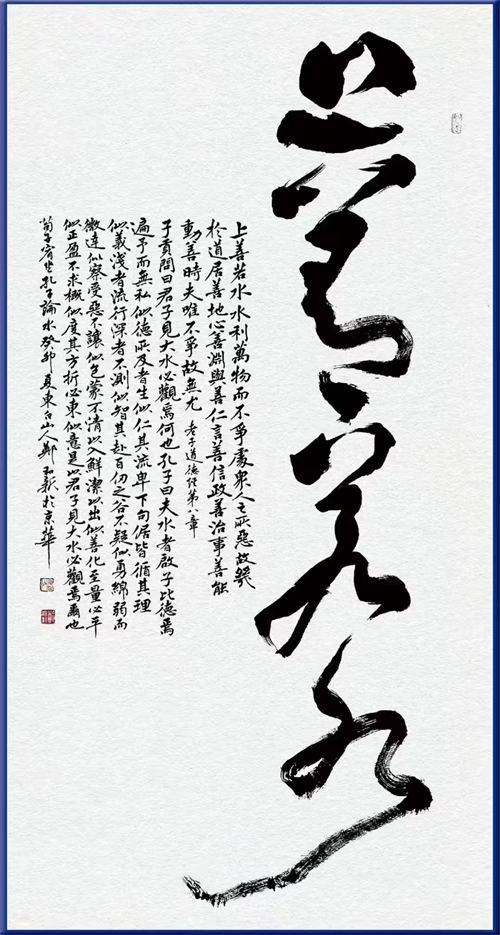 上善若水
上善若水水利萬物而不爭處衆人之所惡故幾
於道居善地心善淵與善仁言善信政善治事善能
動善時夫唯不爭故無尤 老子道德經第八章
子貢問曰君子見大水必觀焉何也孔子曰夫水者啟子比德焉
遍予而無私似德所及者生似仁其流卑下句倨皆循其理
似義淺者流行深者不測似智其赴百仞之谷不疑似勇綿弱而
微達似察受惡不讓似包蒙不清以入鮮潔以出似善化至量必平
似正盈不求概似度其万折必東似意是以君子見大水必觀焉爾也
荀子宥坐孔子論水癸卯夏東白山人鄭新於京華